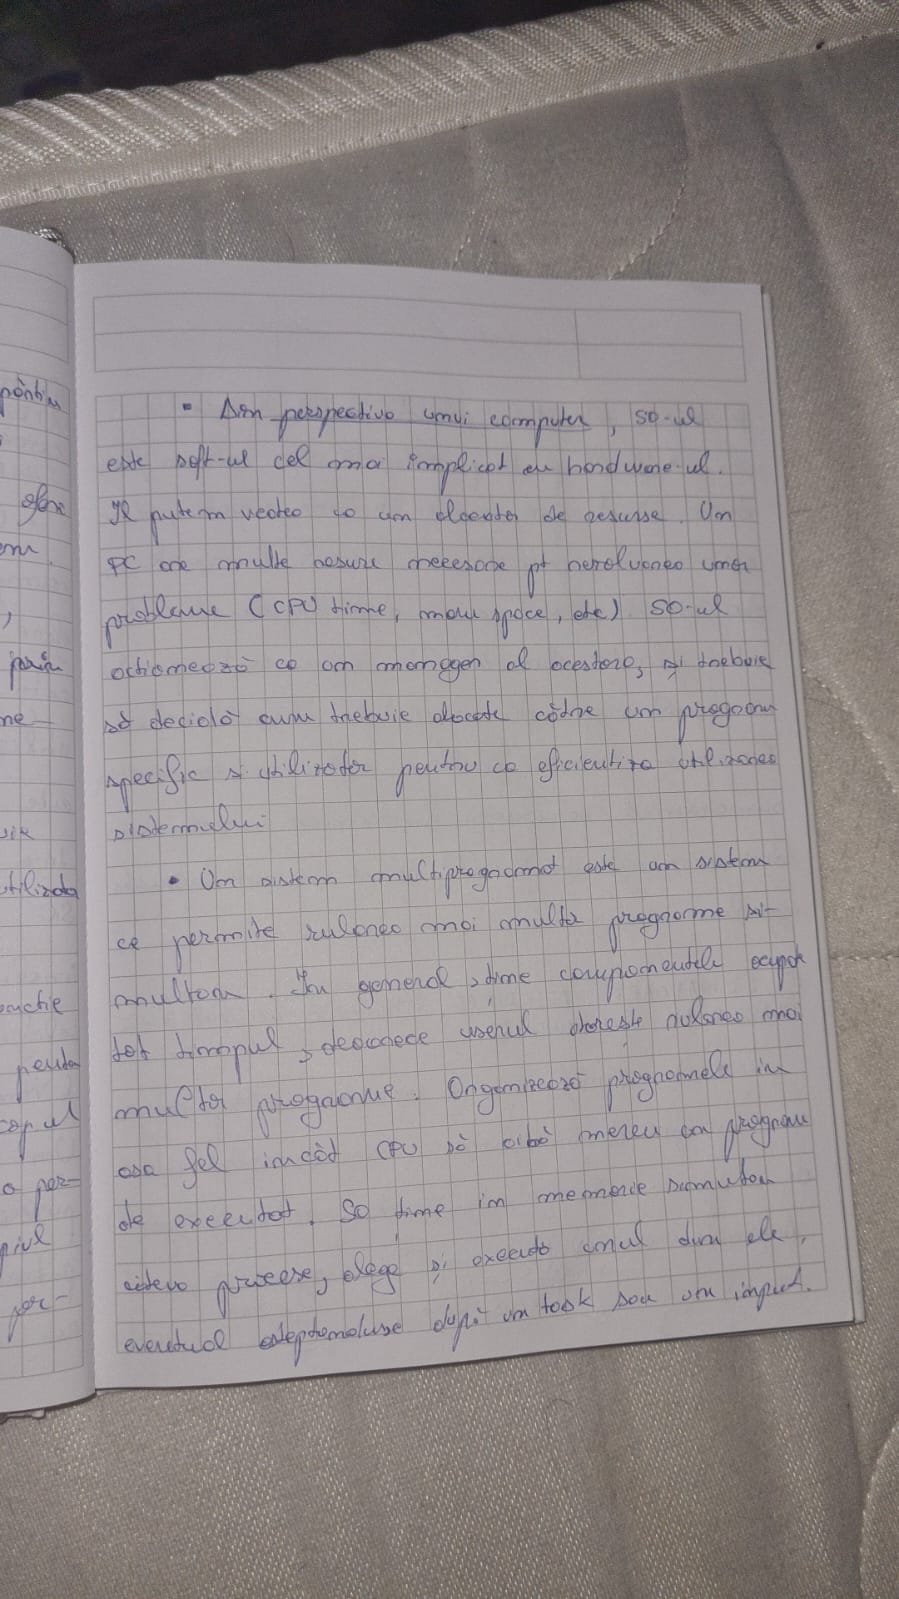 ponibil
• Din perspectiva unui computer, SO-ul
este soft-ul cel mai implicat cu hardware-ul.
Il putem vedea ca un alocator de resurse. Un
PC are multe resurse necesare pt rezolvarea unor
probleme (CPU time, mem space, etc) SO-ul
prin
actioneaza ca un manager al acestora, și trebuie
să decidă cum trebuie alocate către un program
specific și utilizator pentru ca eficientiza utilizarea
sistemului
• Un sistem multiprogramat este un sistem
utiliza
ce permite rularea mai multor programe si-
multan. In general, tine componentele ocupate
tot timpul, deoarece userul dorește rularea mai
pentru
multor programe. Organizează programele in
asa fel incât CPU să aibă mereu un program
de executat. So tine in memorie simultan
citeva procese, alege și executa unul din ele,
eventual asteptandu-se după un task sau un input.